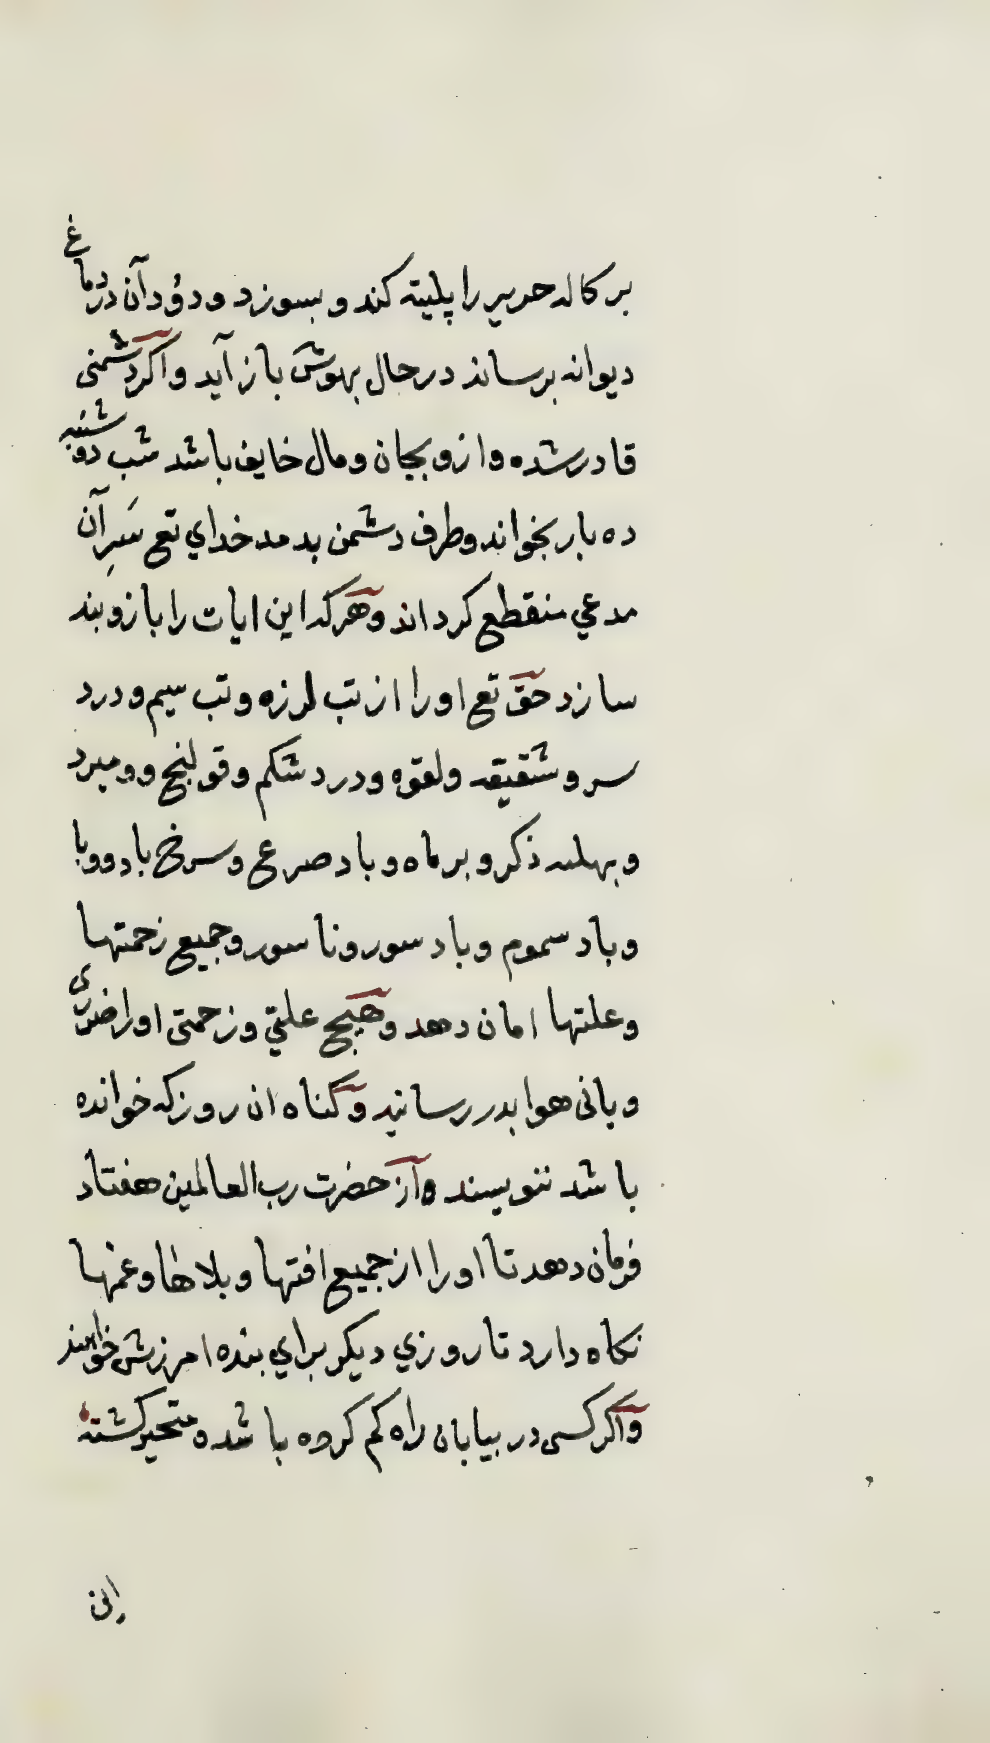 بر کاله حریر را پلیته کند و بسوزد و دُود آن در دماغ
دیوانه برساند در حال بهوش باز آید و اگر دشمنی
قادر شده و ازو بجان و مال خایف باشد شب دوشنبه
ده بار بخواند و طرف دشمن بدمد خدای تع سَرِ آن
مدعی منقطع کرداند و هرکه این ایات را بازوبند
سازد حق تع او را از تب لرزه و تب سیم و درد
سر و شقیقه و لقوه و درد شکم و قولنج و
و باد صرع و سرخ باد و وبا
و باد سموم و باد سور و ناسور و جمیع زحمتها
و علتها امان دهد و هیچ علتی و زحمتی او را ضرری
و بانی هوا بدر رسانید و کناه ان روز که خوانده
باشد ننویسند و از حضرت رب العالمین هفتاد
فرمان دهد تا او را از جمیع افتها و بلاها و غمها
نکاه دارد تا روزی دیکر برای بنده امرزش خواهند
و اکر کسی در بیابان راه کم کرده باشد و متحیر کشته
این